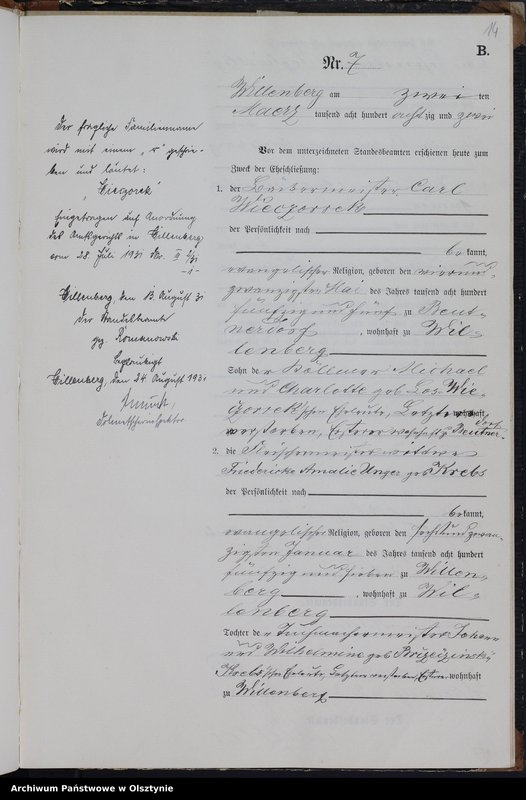 14
B.
Nr. 7
Willenberg am zwei ten
Maerz tausend acht hundert acht zig und zwei
Vor dem unterzeichneten Standesbeamten erschienen heute zum
Zweck der Eheschließung:
1. der Färbermeister Carl
Wieczorrek
der Persönlichkeit nach
bekannt,
evangelischer Religion, geboren den vierund-
zwanzigsten Mai des Jahres tausend acht hundert
fünfzig und fünf zu Beut-
nerdorf, wohnhaft zu Wil-
lenberg
Sohn der Kölmer Michael
und Charlotte geb. Wie-
zorrek'schen Eheleute, Letztere wohnhaft
verstorben, Ersterer wohnhaft zu Beutner-
dorf
2. die Fleischermeisterwittwe
Friedericke Amalie Unger geb. Krebs
der Persönlichkeit nach
bekannt,
evangelischer Religion, geboren den sechsundzwan-
zigsten Januar des Jahres tausend acht hundert
fünfzig und sieben zu Willen-
berg, wohnhaft zu Wil-
lenberg
Tochter der Tuchmachermeister Johann
und Wilhelmine geb.
Krebs'schen Eheleute, Letztere verstorben, Ersterer wohnhaft
zu Willenberg
Der fragliche Familienname
wird mit einem "r" geschrie-
ben und lautet:
"Wieczorek"
Eingetragen auf Anordnung
des Amtsgerichts in Willenberg
vom 28. Juli 1931 Nr. III
Willenberg, den 13. August 31
Der Standesbeamte
gez. Romanowski
Beglaubigt
Willenberg, den 24. August 1931
Archiwum Państwowe w Olsztynie